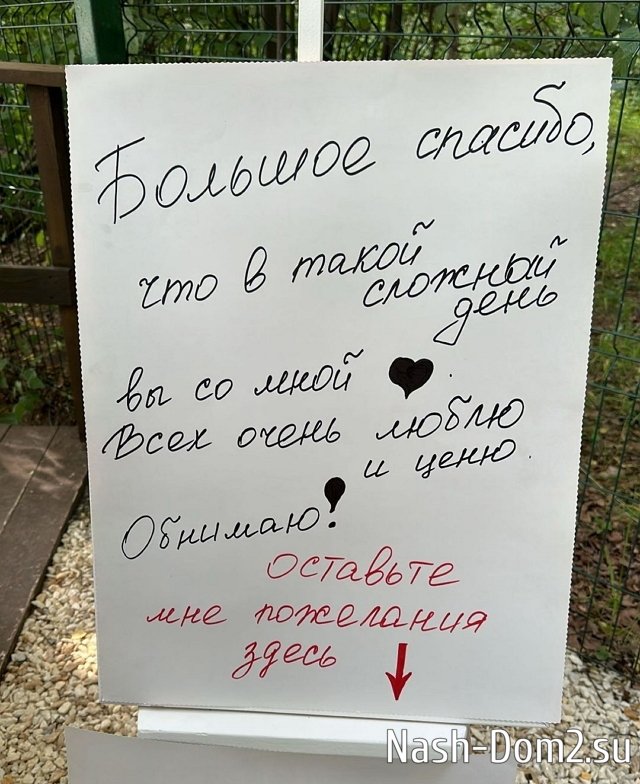 Большое спасибо,
что в такой
сложный
день
вы со мной ♥.
Всех очень люблю
и ценю.
Обнимаю!
Оставьте
мне пожелания
здесь ↓
Nash-Dom2.su